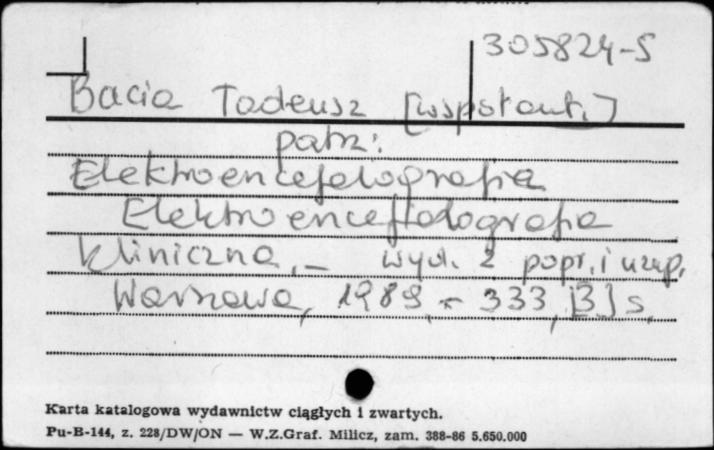 305824-S
Bacia Tadeusz [współaut.]
patrz:
Elektroencefalografia
Elektroencefalografia
kliniczna, – wyd. 2 popr. i uzup.
Warszawa, 1989. – 333, [3] s.
Karta katalogowa wydawnictw ciągłych i zwartych.
Pu-B-144, z. 228/DW/ON — W.Z.Graf. Milicz, zam. 388-86 5.650.000